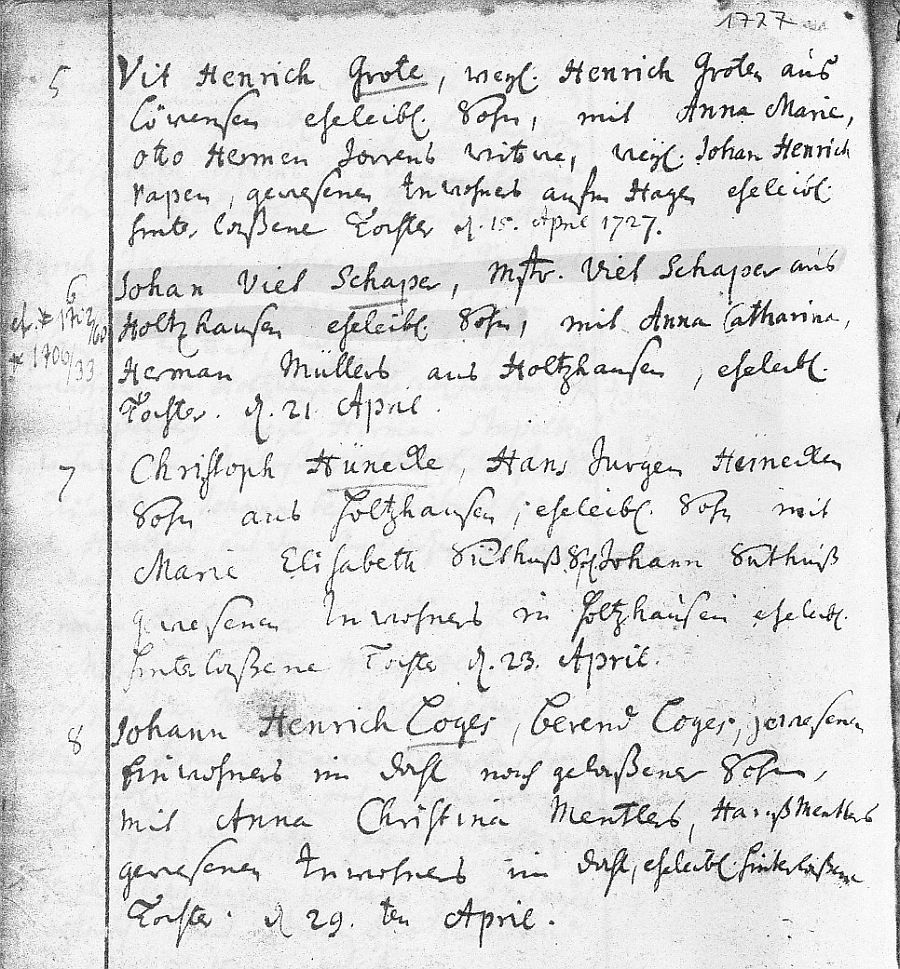 1727
5 Vit Henrich Grote, weyl. Henrich Groten aus
Löwensen eheleibl. Sohn, mit Anna Marie,
Otto Hermen Jerrens witwe, weyl. Johan Henrich
Papen, gewesenen Inwohners aufm Hagen eheleibl.
hinterlaßene Tochter d. 15. April 1727.
6 Johan Viet Schaper, Mstr. Viet Schaper aus
Holtzhausen eheleibl. Sohn, mit Anna Catharina,
* 1706/33
Herman Müllers aus Holtzhausen, eheleibl.
Tochter. d. 21. April.
7 Christoph Hünecke, Hans Jurgen Heinecken
Sohn aus Holtzhausen, eheleibl. Sohn mit
Marie Elisabeth Süthuß, Johann Suthuß
gewesenen Inwohners in Holtzhausen eheleibl.
hinterlaßene Tochter d. 23. April.
8 Johann Henrich Coges, Berend Coges, gewesenen
Einwohners im dahl nachgelaßener Sohn,
mit Anna Christina Mentlers, Hanß Mentlers
gewesenen Inwohners im dahl, eheleibl. hinterlaßene
Tochter. d 29. ten April.